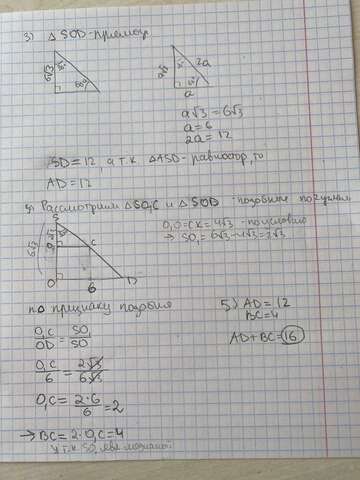 3) △ SOD - прямоуг
6√3 30° 60°
a√3 30° 2a 60° a
a√3 = 6√3
a = 6
2a = 12
SD = 12, а т.к △ASD - равностор, то
AD = 12
Рассмотрим △SO₁C и △SOD - подобные по 2 углам
O₁O = CK = 4√3 - по условию
→ SO₁ = 6√3 - 4√3 = 2√3
S 6√3 2√3 O₁ C O 6 D
по признаку подобия
O₁C/OD = SO₁/SO
O₁C/6 = 2√3/6√3
O₁C = 2·6/6 = 2
→ BC = 2·O₁C = 4
т.к SO₁ явл медианой
5) AD = 12
BC = 4
AD + BC = 16